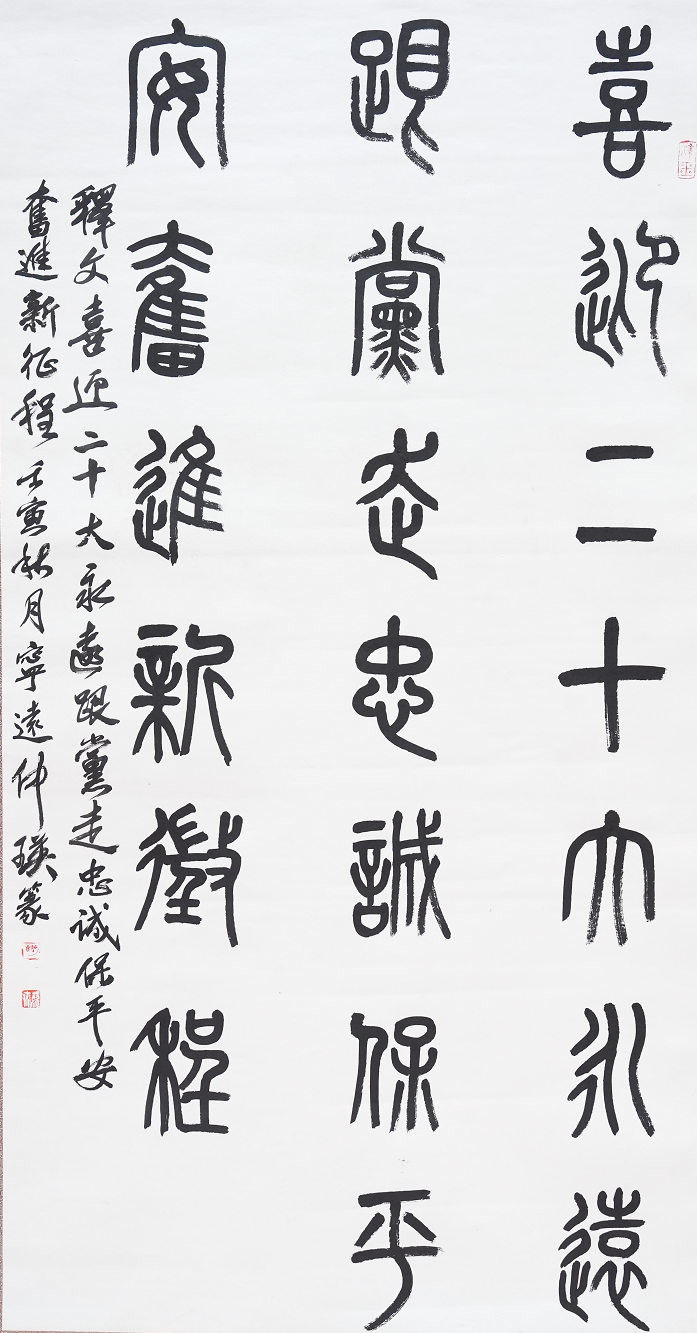 喜迎二十大永遠
跟黨走忠誠保平
安奮進新徵程
釋文喜迎二十大永遠跟黨走忠誠保平安
奮進新征程壬寅秋月寧遠仲瑛篆